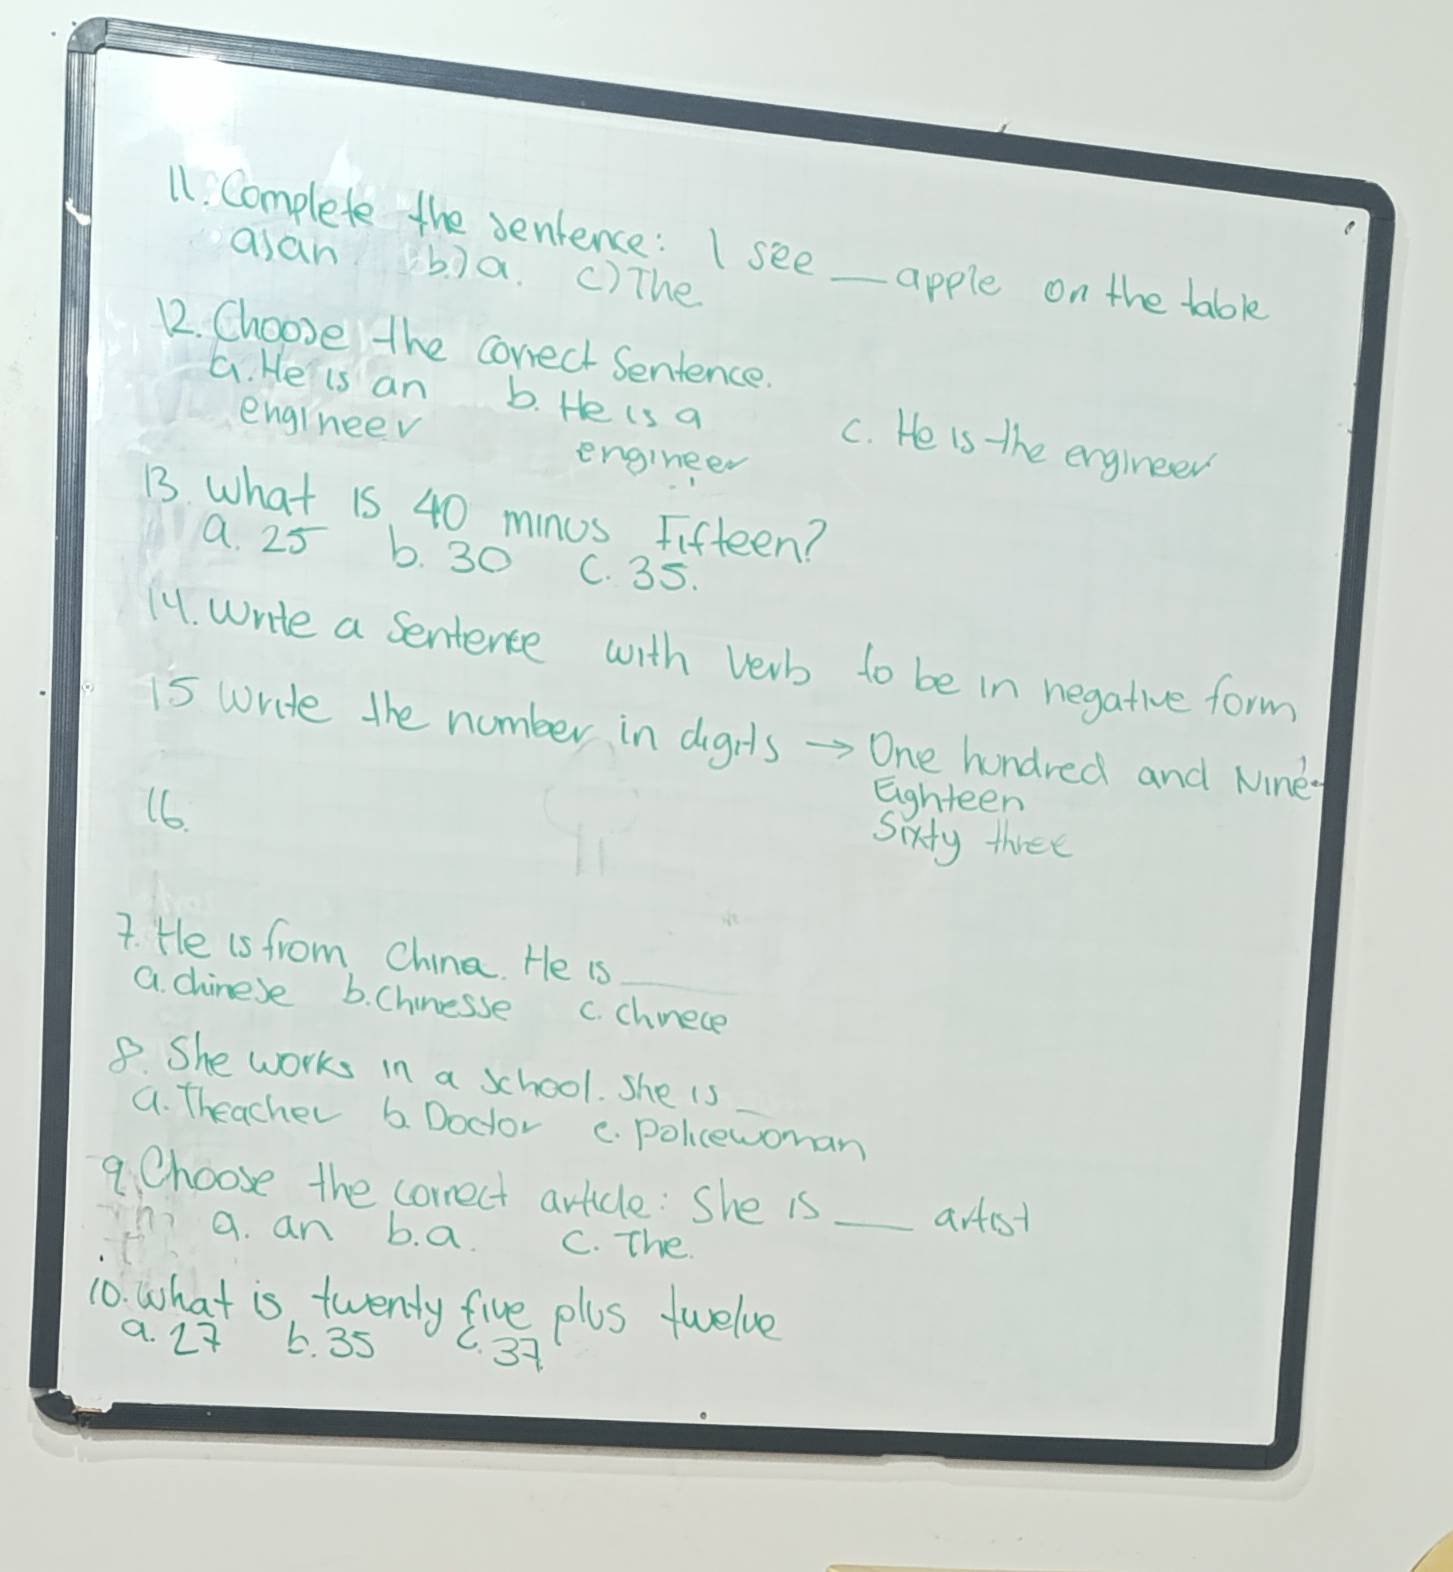 11. Complete the sentence: I see __ apple on the table
a) an b.) a. c) The.
12. Choose the correct Sentence.
a. He is an b. He is a c. He is the engineer
engineer engineer
13. What is 40 minus Fifteen?
a. 25 b. 30 c. 35.
14. Write a Sentence with verb to be in negative form
15 Write the number in digits → One hundred and Nine
Eighteen
Sixty three
16.
7. He is from China. He is ___
a. chinese b. Chinesse c. chinece
8. She works in a school. She is _
a. Theacher b. Doctor c. policewoman
9. Choose the correct article: She is ___ artist
a. an b. a. c. The.
10. What is twenty five plus twelve
a. 27 b. 35 c. 37.